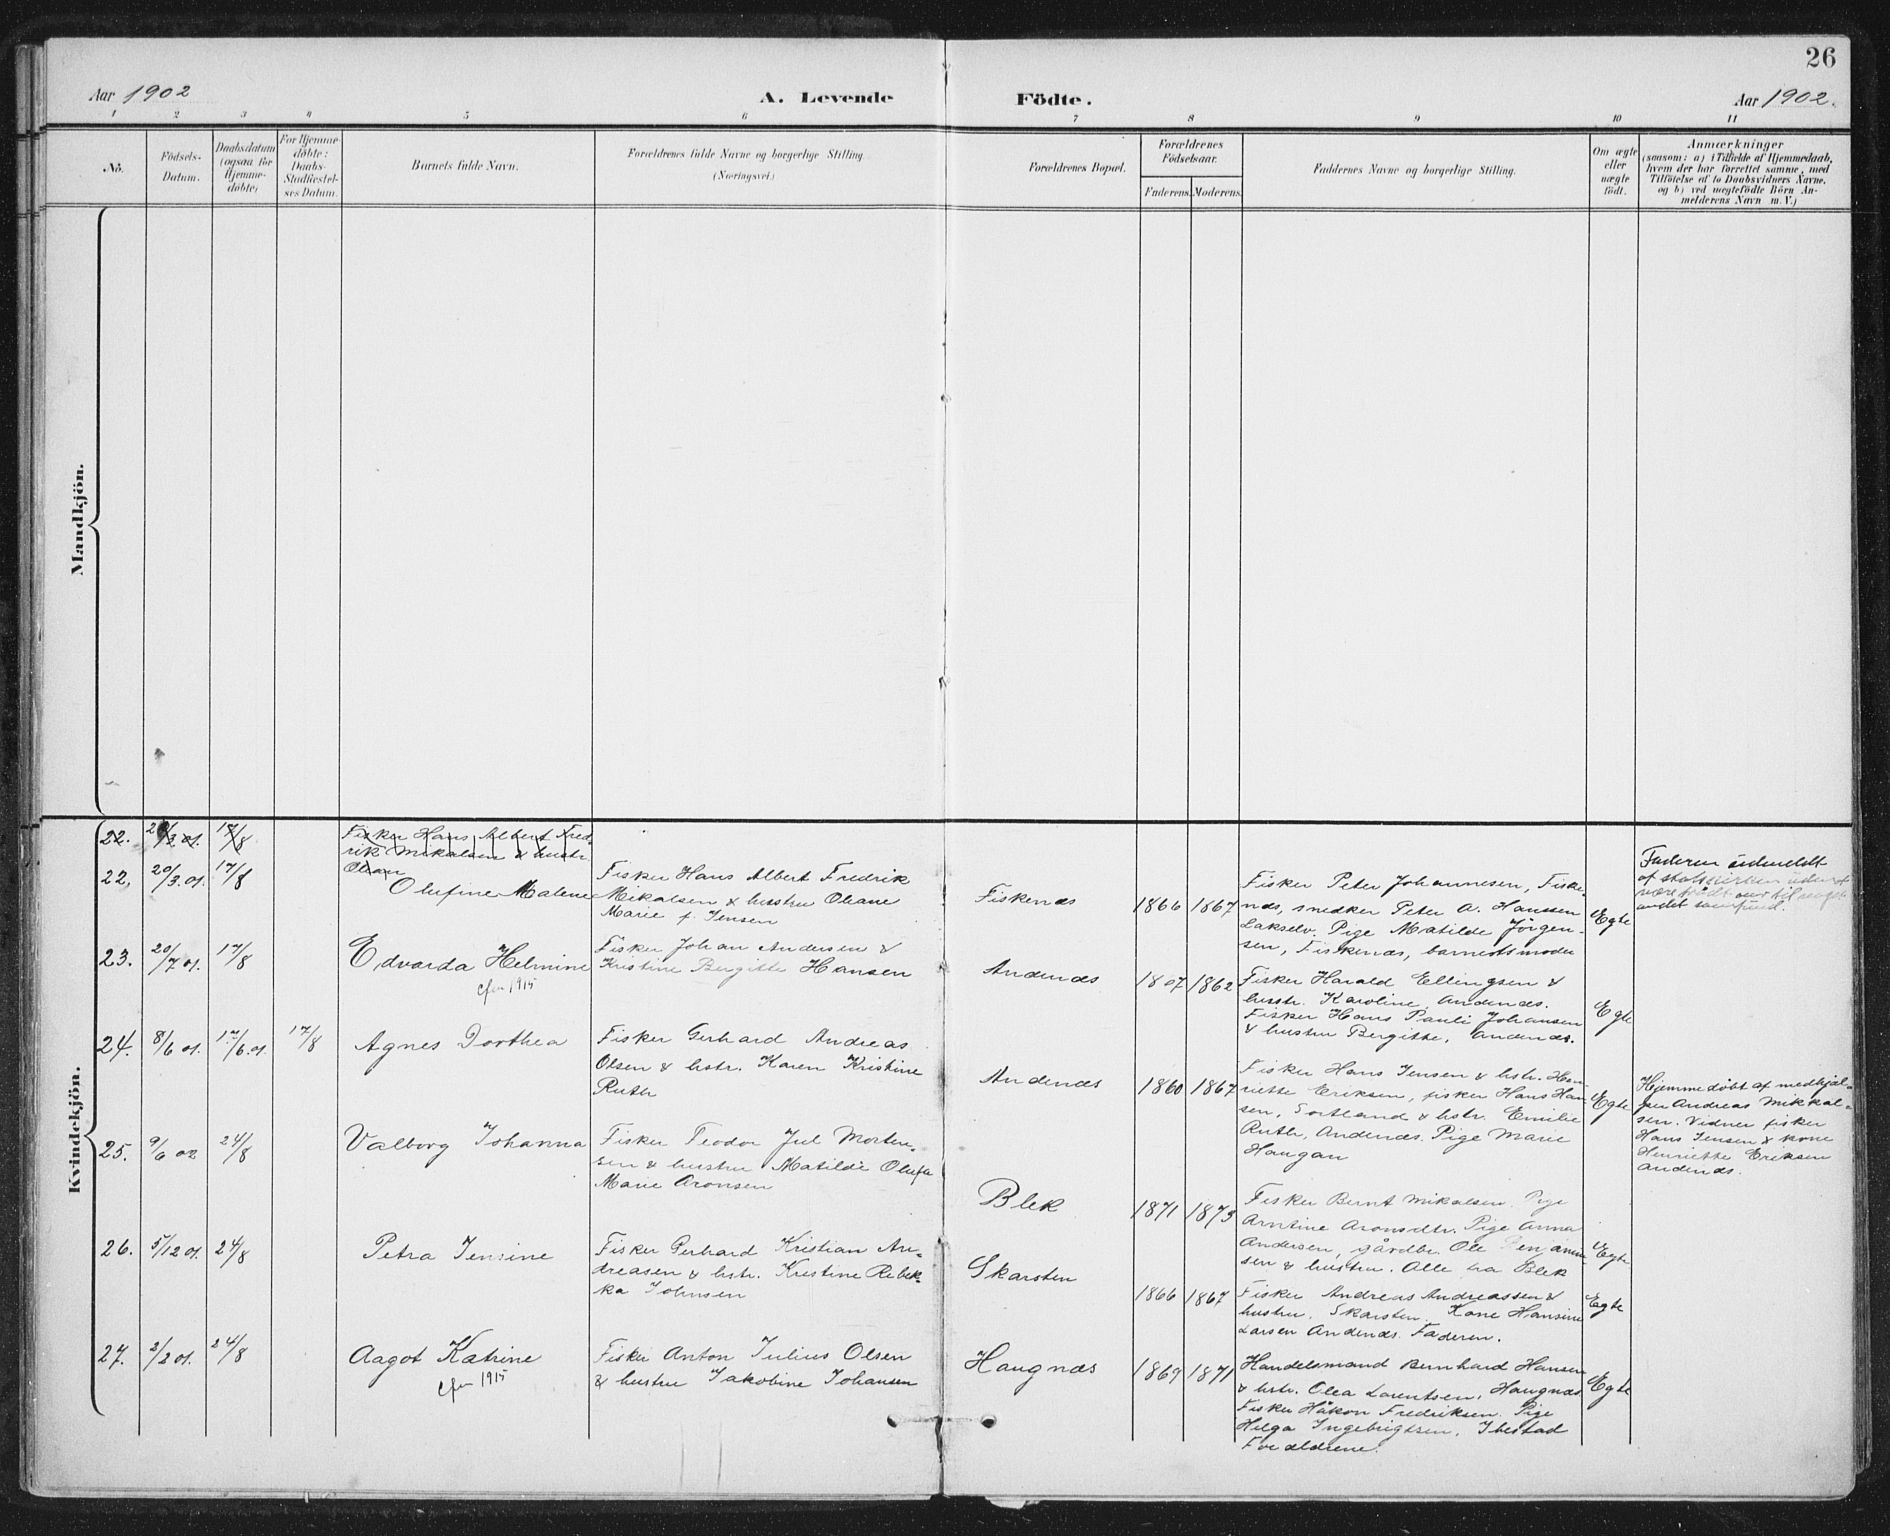 26
Aar 1902
A. Levende
Födte.
Aar 1902.
1 2 3 4 5 6 7 8 9 10 11
No.
Födsels-
Datum.
Daabsdatum
(ogsaa for
Hjemme-
døbte)
For Hjemme-
døbte:
Daabs-
Stadfæstel-
ses Datum.
Barnets fulde Navn.
Forældrenes fulde Navne og borgerlige Stilling
(Næringsvei.)
Forældrenes Bopæl.
Forældrenes
Födselsaar.
Faderens.
Moderens.
Faddernes Navne og borgerlige Stilling.
Om ægte
eller
uægte
födt.
Anmærkninger
(saasom: a) i Tilfælde af Hjemmedaab,
hvem der har forrettet samme, med
Tilføielse af to Daabsvidners Navne,
og b) ved uægtefödte Börn An-
melderens Navn m. V.)
Mandkjön.
Kvindekjön.
22. 20/3 01. 17/8
Fisker Hans Albert Fred-
rik Mikalsen & hustr.
22. 20/3.01. 17/8
Olufine Malene
Fisker Hans Albert Fredrik
Mikalsen & hustru Oliane
Marie f. Jensen
Fiskenæs
1866 1867
Fisker Peter Johannesen, Fiske-
næs, snedker Peter A. Hanssen
Lakselv. Pige Matilde Jörgen-
sen, Fiskenæs, barnets moder
Egte
Faderen udmeldt
af statskirken uden at
være trådt over til noget
andet samfund.
23. 20/7 01. 17/8
Edvarda Helmine
cfm 1915
Fisker Johan Andersen &
Kristine Bergitte Hansen
Andenæs
1862
Fisker Harald Ellingsen &
hustr. Karoline, Andenæs.
Fisker Hans Pauli Johansen
& hustru Bergitte, Andenæs.
Egte
24. 8/6 01. 17/8
Agnes Dorthea
Fisker Gerhard Andreas
Olsen & hstr. Karen Kristine
Ruth
Andenæs
1860 1867
Fisker Hans Jensen & hstr. Hen-
riette Eriksen, fisker Hans Han-
sen, Sortland & hstr. Emilie
Ruth, Andenæs. Pige Marie
Haugan
Egte
Hjemmedöbt af medhjæl-
per Andreas Mikkal-
sen. Vidner fisker
Hans Jensen & kone
Henriette Eriksen
Andenæs.
25. 9/6 02 24/8
Valborg Johanna
Fisker Teodor Jul Morten-
sen & hustru Matilde Olufa
Marie Aronsen
Blek
1871 1873
Fisker Bernt Mikalsen. Pige
Arntine Aronsdtr. Pige Anna
Andersen, gårdbr. Ole Benjamin-
sen & hustru. Alle fra Blek
Egte
26. 5/12 01. 24/8
Petra Jensine
Fisker Gerhard Kristian An-
dreasen & hstr. Kristine Rebek-
ka Johnsen
Skarsten
1866 1867
Fisker Andreas Andreassen &
hustru. Skarsten. Kone Hansine
Larsen Andenæs. Faderen.
Egte
27. 2/2 01. 24/8
Aagot Katrine
cfm 1915
Fisker Anton Julius Olsen
& hustru Jakobine Johansen
Haugnæs
1869 1871
Handelsmand Bernhard Hansen
& hstr. Olea Lorentsen, Haugnæs
Fisker Håkon Fredriksen. Pige
Helga Ingebrigtsen, Ibestad
Forældrene.
Egte